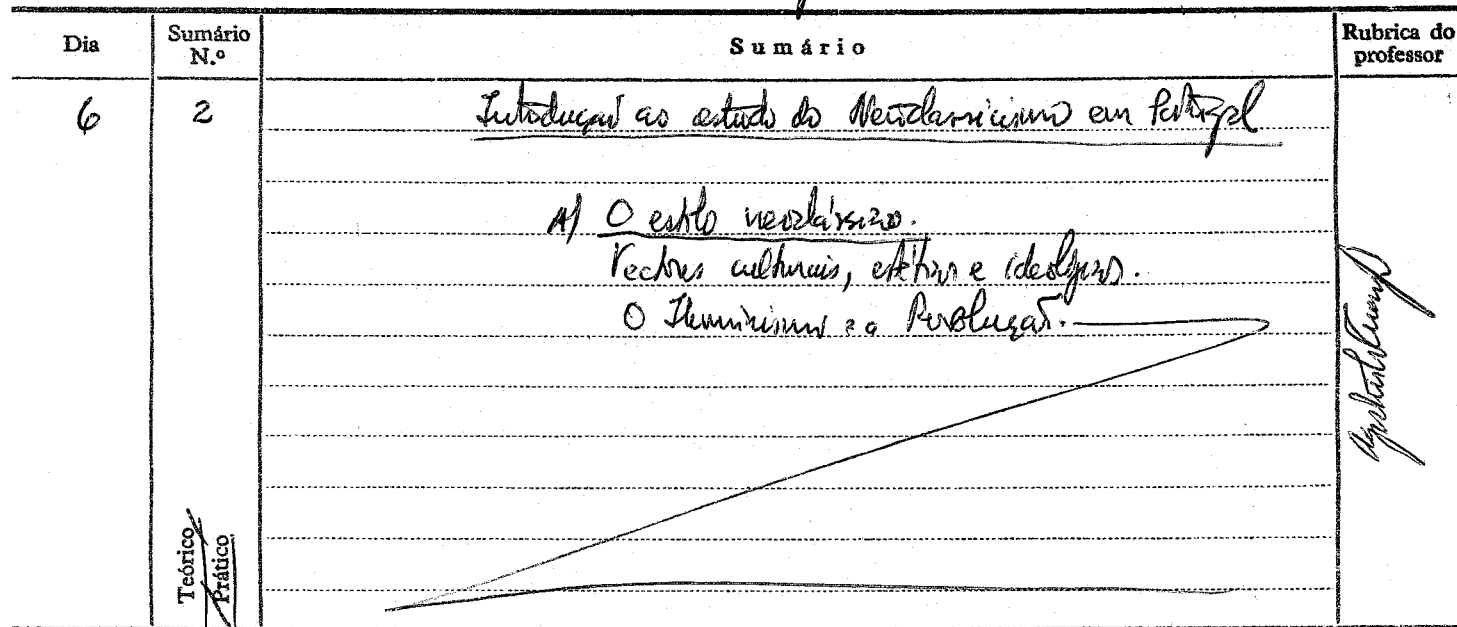 Dia
Sumário N.º
Sumário
Rubrica do professor
6
2
Introdução ao estudo do Neoclassicismo em Portugal
A) O estilo neoclássico.
Vectores culturais, estéticos e ideológicos.
O Iluminismo e a Revolução.
Teórico
Prático